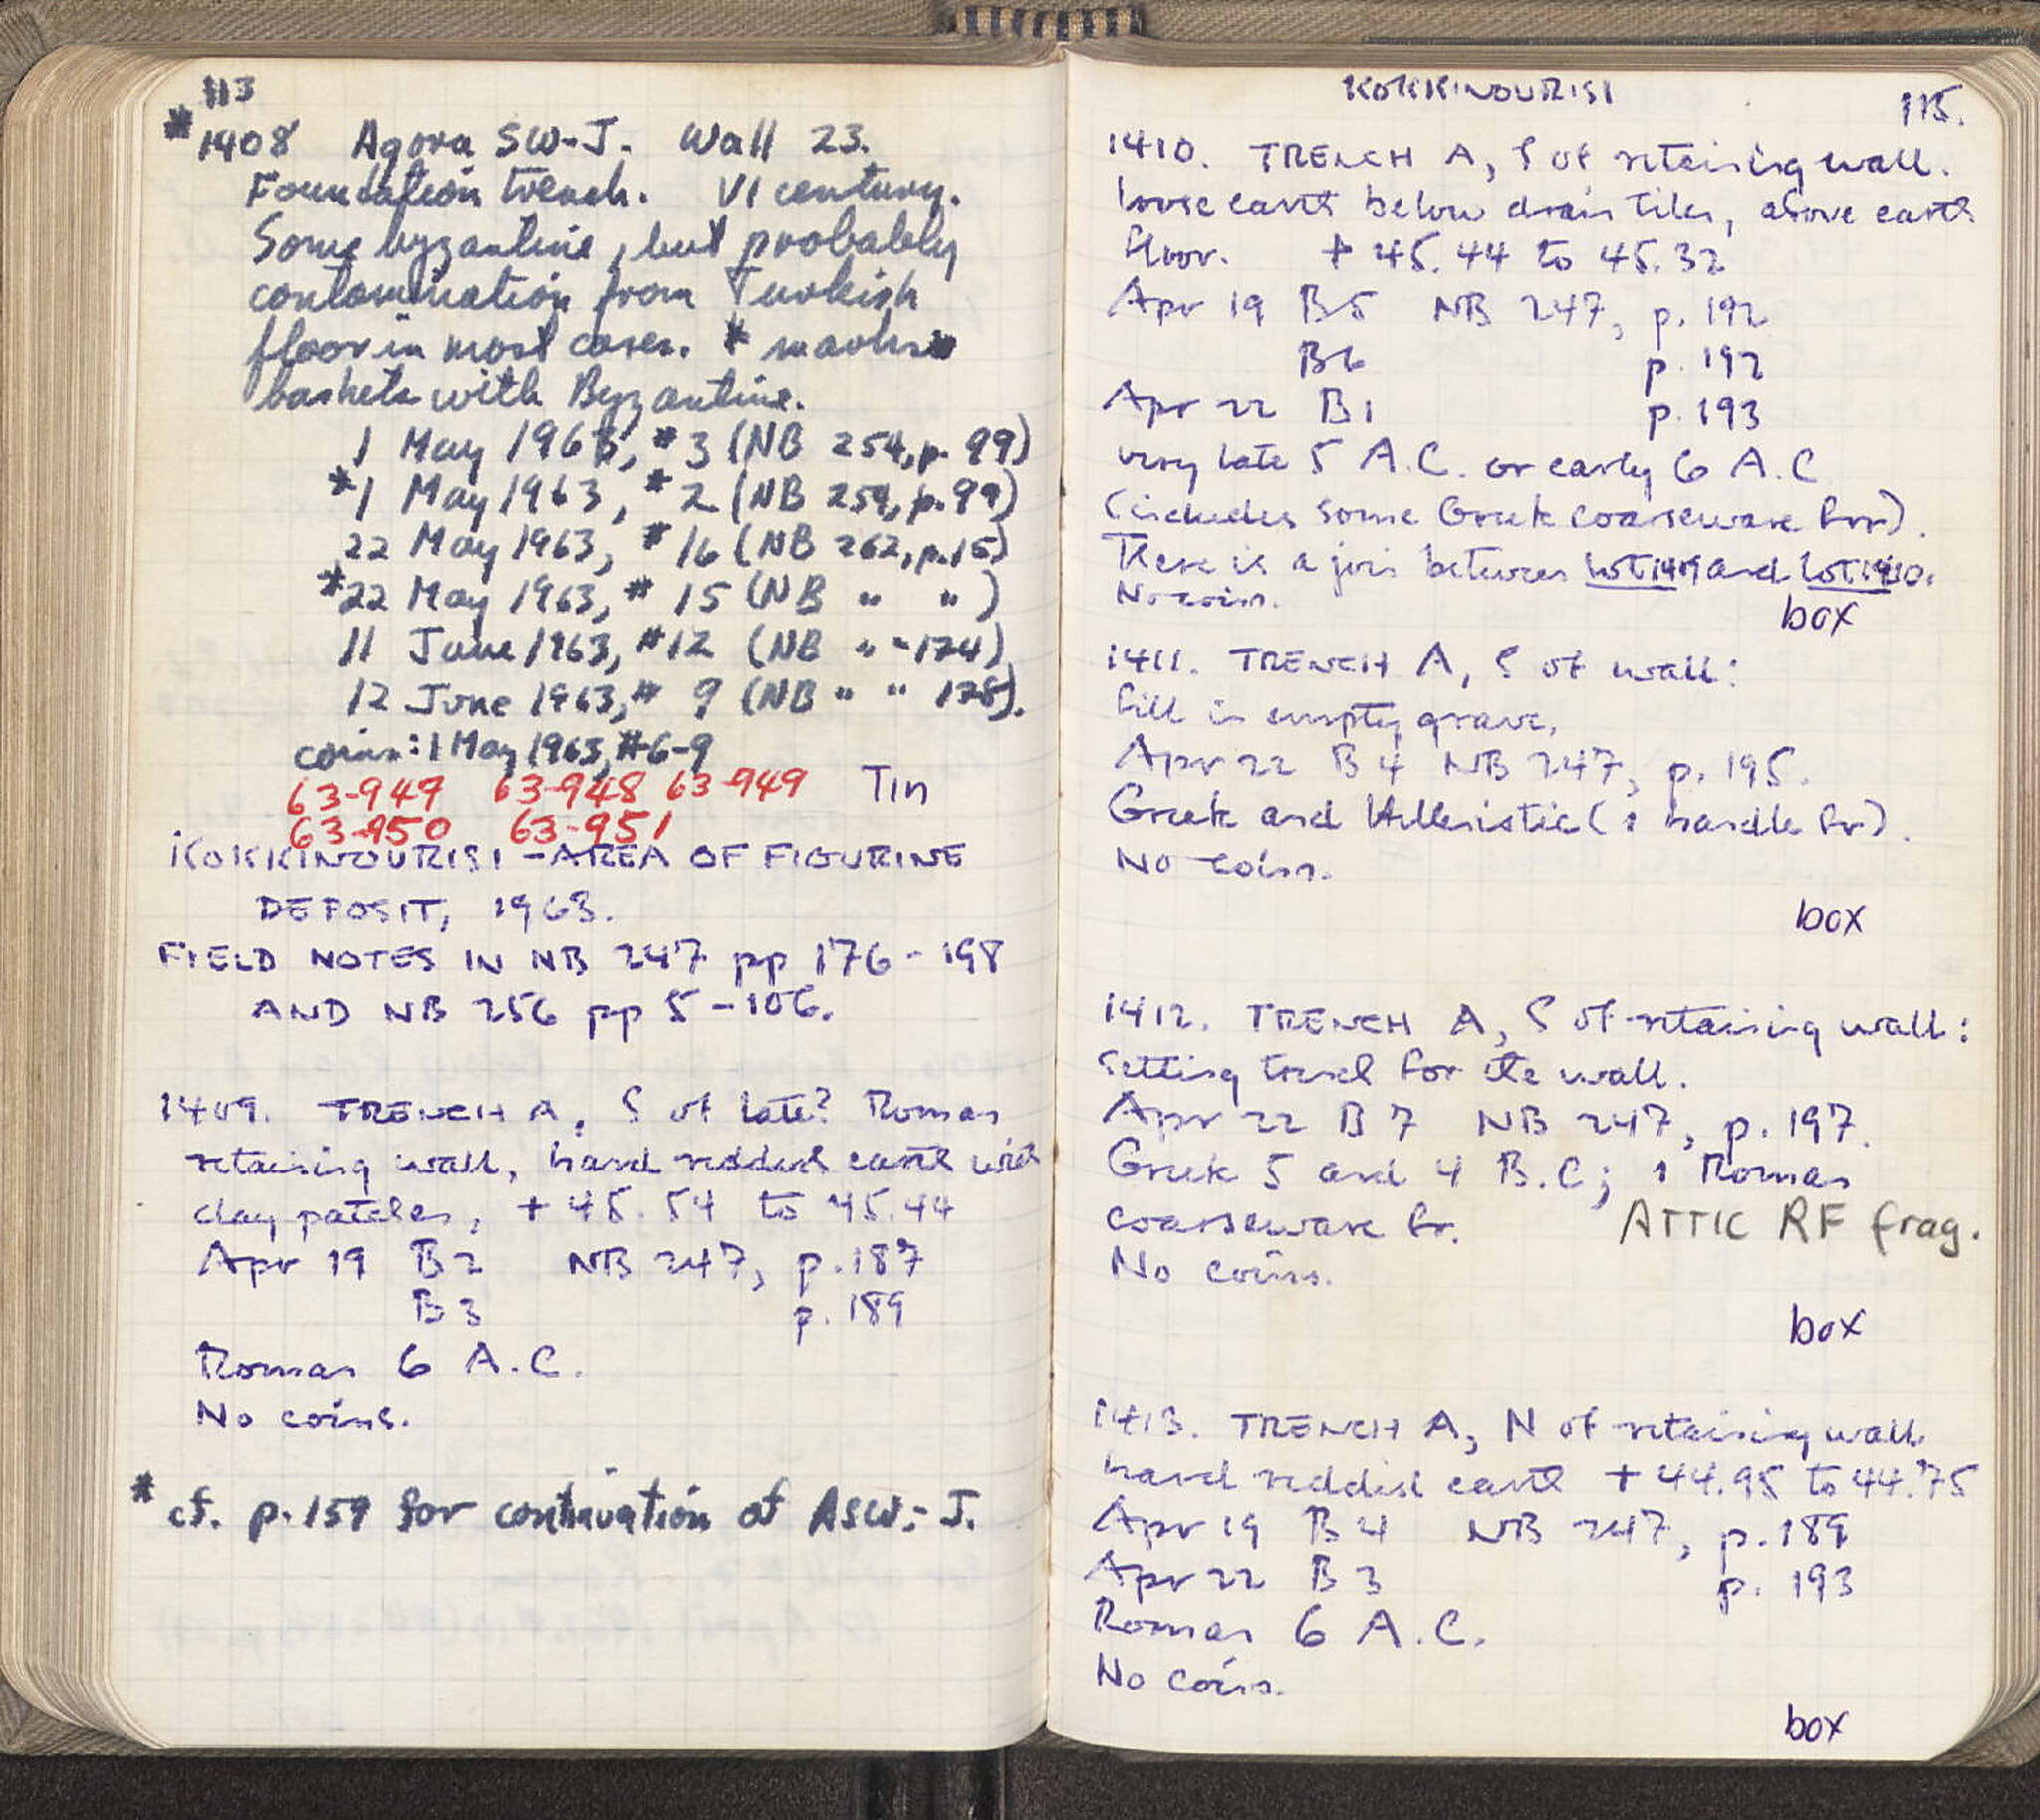 113
* 1408 Agora SW-J. Wall 23.
Foundation trench. VI century.
Some byzantine, but probably
contamination from Turkish
floor in most cases. * marks
baskets with Byzantine.
1 May 1963, #3 (NB 254, p. 99)
*1 May 1963, #2 (NB 254, p. 99)
22 May 1963, #16 (NB 262, p. 15)
*22 May 1963, #15 (NB " ")
11 June 1963, #12 (NB " " 174)
12 June 1963, # 9 (NB " " 178).
coins: 1 May 1963, #6-9
63-947 63-948 63-949 Tin
63-950 63-951
KOKKINOURISI - AREA OF FIGURINE
DEPOSIT, 1963.
FIELD NOTES IN NB 247 pp 176-198
AND NB 256 pp 5-106.
1409. TRENCH A, S of late? Roman
retaining wall, hard reddish earth with
clay patches, +45.54 to 45.44
Apr 19 B2 NB 247, p. 187
B3 p. 189
Roman 6 A.C.
No coins.
* cf. p. 159 for continuation of ASW-J.
KOKKINOURISI
115.
1410. TRENCH A, S of retaining wall.
loose earth below drain tiles, above earth
floor. +45.44 to 45.32
Apr 19 B5 NB 247, p. 192
B6 p. 192
Apr 22 B1 p. 193
very late 5 A.C. or early 6 A.C
(includes some Greek coarseware frr).
There is a join between Lot 1409 and Lot 1410.
No coins.
box
1411. TRENCH A, S of wall:
fill in empty grave.
Apr 22 B4 NB 247, p. 195.
Greek and Hellenistic (1 handle fr).
No coins.
box
1412. TRENCH A, S of retaining wall:
Setting trench for the wall.
Apr 22 B7 NB 247, p. 197.
Greek 5 and 4 B.C; 1 Roman
coarseware fr. ATTIC RF frag.
No coins.
box
1413. TRENCH A, N of retaining wall
hard reddish earth +44.95 to 44.75
Apr 19 B4 NB 247, p. 189
Apr 22 B3 p. 193
Roman 6 A.C.
No coins.
box